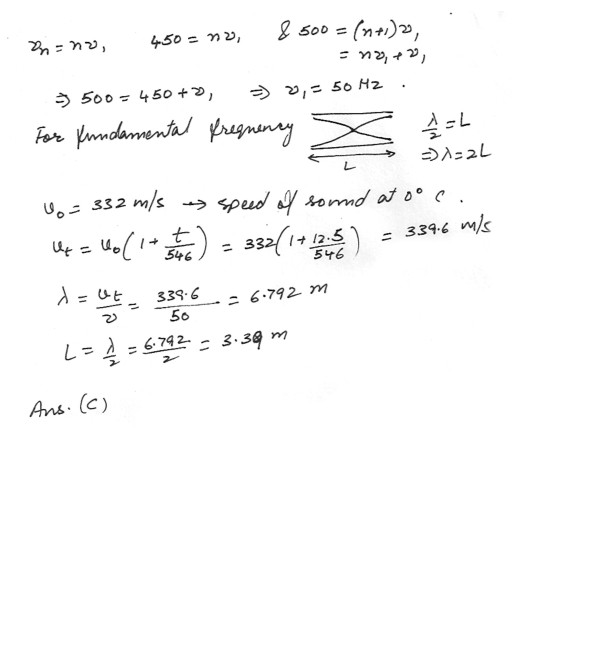 νn = nν1   450 = nν1   & 500 = (n+1)ν1
= nν1 + ν1
⇒ 500 = 450 + ν1   ⇒ ν1 = 50 Hz .
For fundamental frequency   λ/2 = L
L   ⇒ λ = 2L
v0 = 332 m/s → speed of sound at 0° C .
vt = v0(1 + t/546) = 332(1 + 12.5/546) = 339.6 m/s
λ = vt/ν = 339.6/50 = 6.792 m
L = λ/2 = 6.792/2 = 3.39 m
Ans. (C)